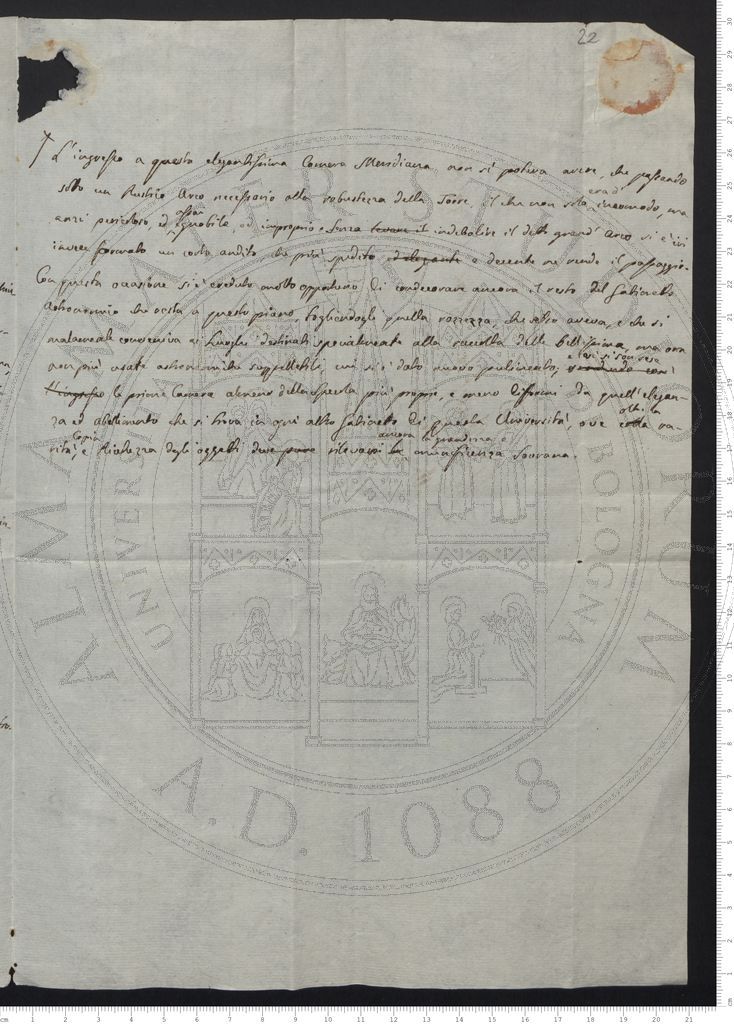 22
L'ingresso a questa elegantissima Camera Meridiana, non si poteva avere, che passando
sotto un Rustico Arco necessario alla robustezza della Torre, il che non solo era incomodo, ma
anzi pericoloso, ed assai ignobile ed improprio. Senza levare il indebolire il detto grand' Arco si è in
invece formato un corto andito che più spedito ed elegante e decente ne rende il passaggio.
Con questa occasione si è creduto molto opportuno di condecorare ancora il resto del Gabinetto
Astronomico che resta a questo piano, togliendogli quella rozzezza, che altro aveva, e che si
malamente conveniva a' Luoghi destinati specialmente alla raccolta delle bellissime, ma ora
non più usate astronomiche suppellettili, cui si è dato nuovo pulimento,
e così si son rese
L'ingresso le prime Camere almeno della Specola più proprie, e meno difformi da quell'elegan-
za ed allestimento che si trova in ogni altro Gabinetto di questa Università, ove oltre la va-
rità, Copia e Ricchezza degli oggetti deve pure rilevarsi ancora la grandezza, e la munificenza Sovrana.
ALMA MATER STUDIORUM
UNIVERSITÀ DI BOLOGNA
A.D. 1088